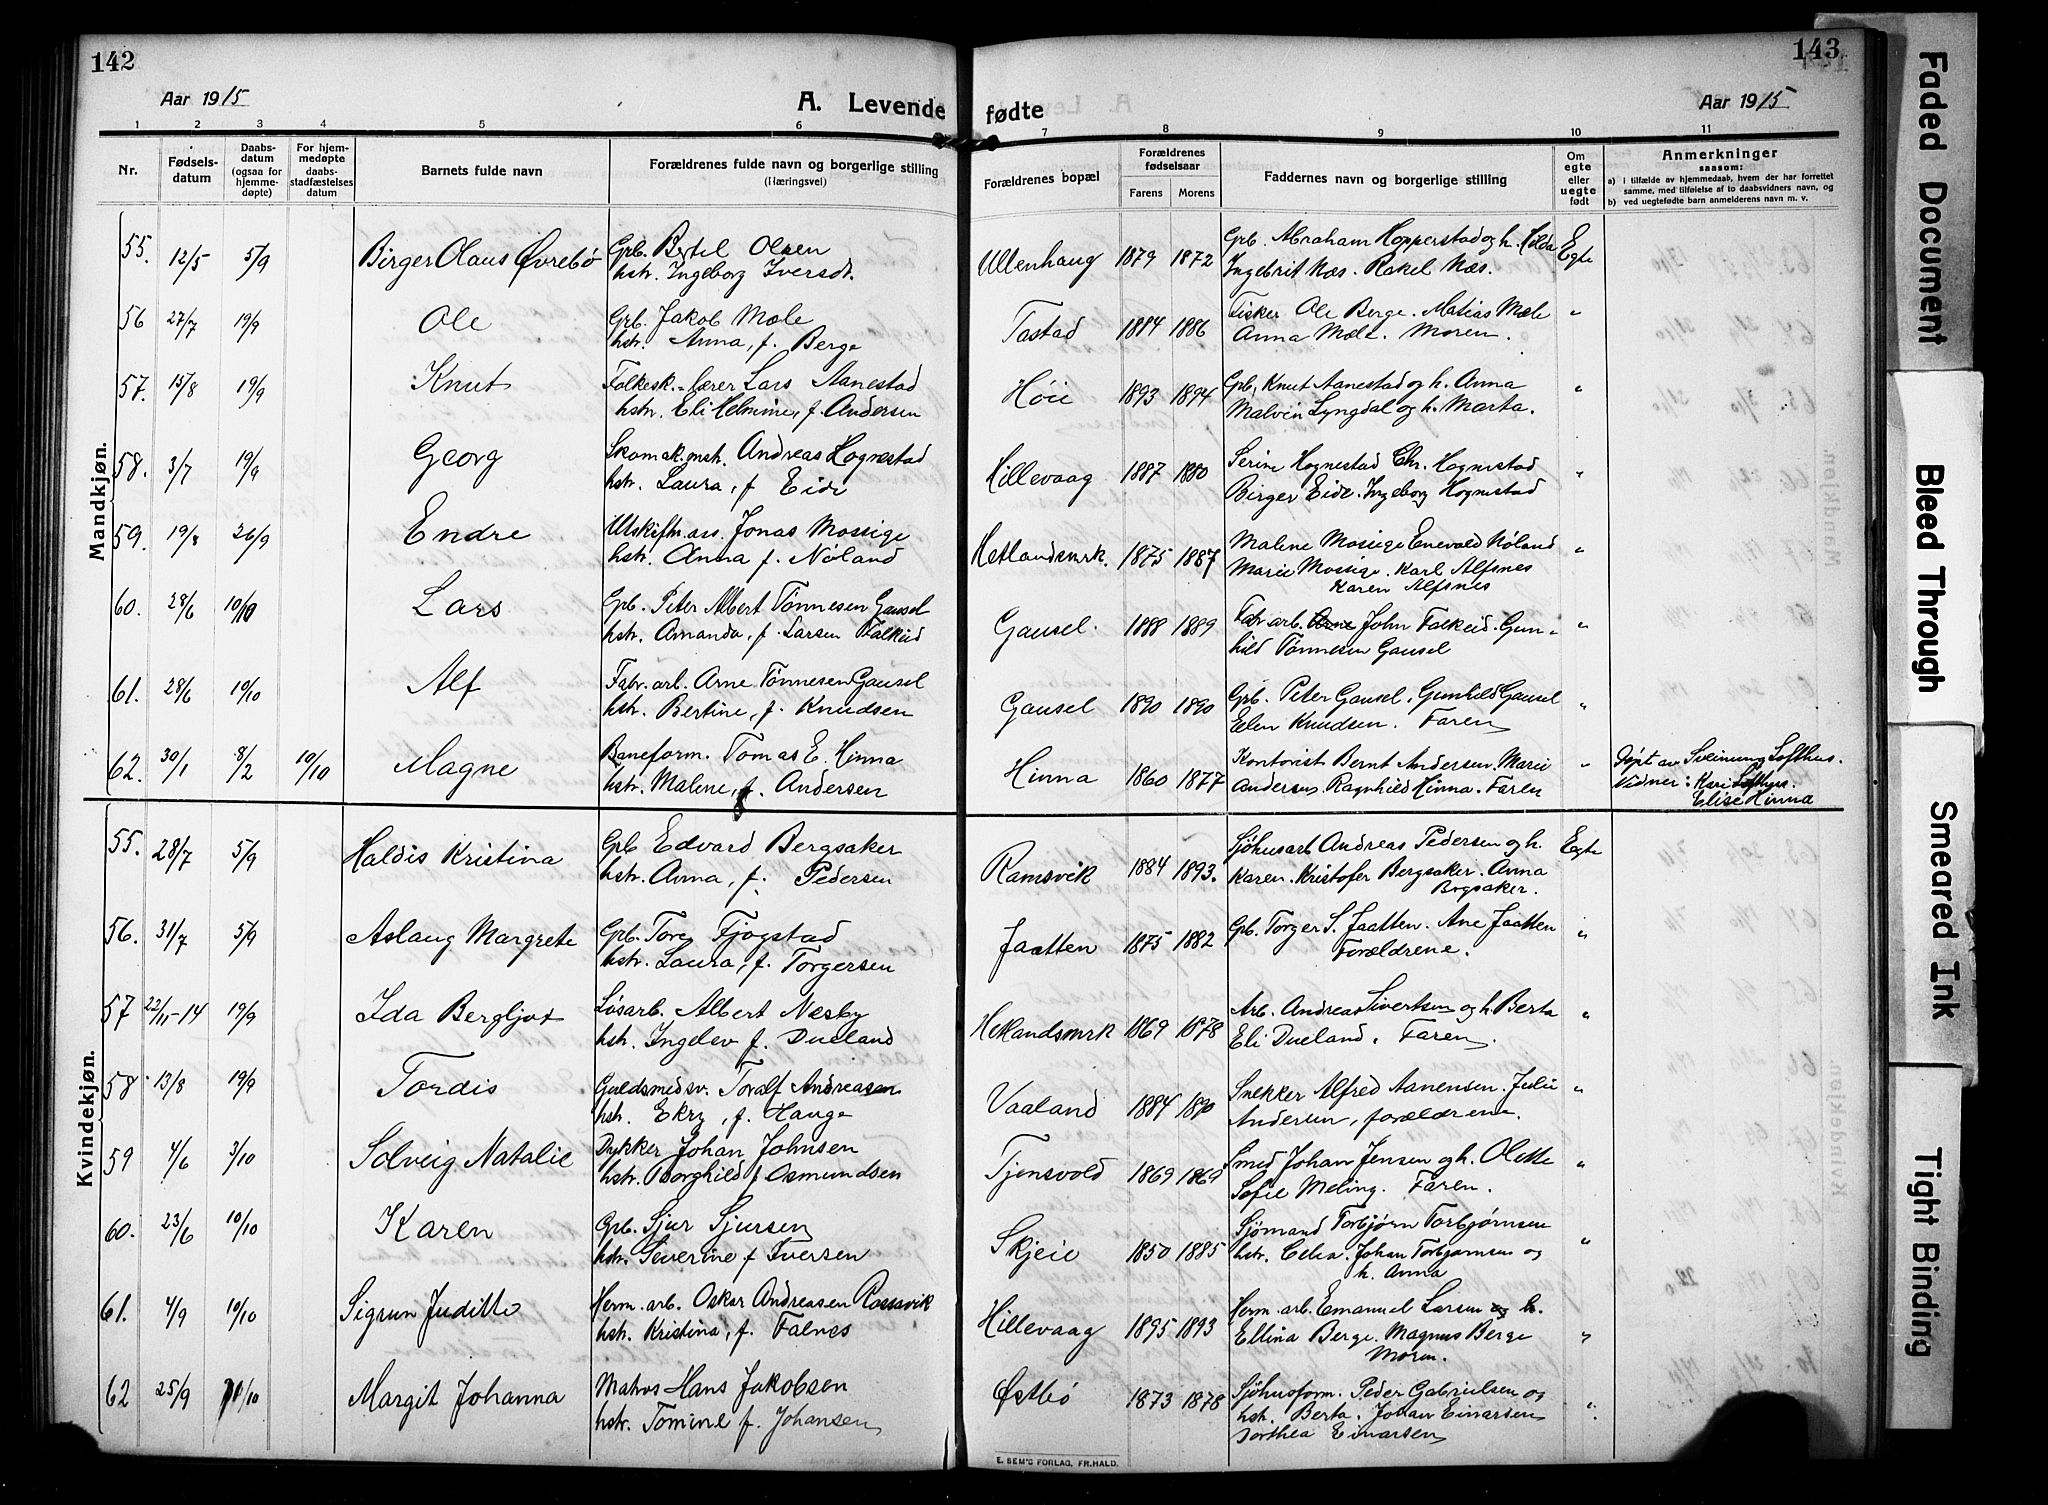 142
Aar 1915
A. Levende
1 2 3 4 5 6
Nr.
Fødsels-
datum
Daabs-
datum
(ogsaa for
hjemme-
døpte)
For hjem-
medøpte
daabs-
stadfæstelses
datum
Barnets fulde navn
Forældrenes fulde navn og borgerlige stilling
(Næringsvei)
Mandkjøn.
55. 12/5 5/9 Birger Olaus Øvrebö Grb. Bertil Olsen
hstr. Ingeborg Iversdt.
56 27/7 19/9 Ole Grb. Jakob Mæle
hstr. Anna, f. Berge
57. 15/8 19/9 Knut Folkesk.-lærer Lars Aanestad
hstr. Eli Helmine, f. Andersen
58. 3/7 19/9 Georg Skomak.mstr. Andreas Hognestad
hstr. Laura, f Eide
59. 19/8 26/9 Endre Utskiftn.ass. Jonas Mossige
hstr. Anna f. Nöland
60. 28/6 10/10 Lars Grb. Peter Albert Tönnesen Gausel
hstr. Amanda, f. Larsen Falkeid
61. 28/6 10/10 Alf Fabr. arb. Arne Tönnesen Gausel
hstr. Bertine, f. Knudsen
62. 30/1 8/2 10/10 Magne Baneform. Tomas E. Hinna
hstr. Malene, f. Andersen
Kvindekjøn.
55. 28/7 5/9 Haldis Kristina Grb Edvard Bergsaker
hstr. Anna, f. Pedersen
56. 31/7 5/9 Aslaug Margrete Grb. Tore Fjogstad
hstr. Laura, f. Torgersen
57 22/11-14 19/9 Ida Bergljot Løsarb. Albert Næsby
hstr. Ingelev f. Dueland
58 13/8 19/9 Tordis Guldsmedsv. Toralf Andreasen
hstr. f. Hauge
59 4/6 3/10 Solveig Natalie Dykker Johan Johnsen
hstr. Borghild f Osmundsen
60. 23/6 10/10 Karen Grb. Sjur Sjursen
hstr. Severine f Iversen
61. 4/9 10/10 Sigrun Juditte Herm. arb. Oskar Andreasen Rossavik
hstr. Kristina, f. Falnes
62 25/9 /10 Margit Johanna Matros Hans Jakobsen
hstr. Tomine f. Johansen
143
fødte
Aar 1915
7 8 9 10 11
Forældrenes bopæl
Forældrenes
fødselsaar
Farens Morens
Faddernes navn og borgerlige stilling
Om
egte
eller
uegte
født
Anmerkninger
saasom:
a) i tilfælde av hjemmedaab, hvem der har forrettet
samme, med tilføielse af to daabsvidners navn, og
b) ved uegtefødte barn anmelderens navn m. v.
Ullenhaug 1879 1872 Grb. Abraham Hopperstad og h. Hilda Egte
Ingebrit Næs. Rakel Næs.
Tastad 1884 1886 Fisker Ole Berge. Matias Mæle "
Anna Mæle. Moren.
Høie 1893 1894 Grb. Knut Aanestad og h. Anna "
Malvin Lyngdal og h. Marta.
Hillevaag 1887 1880 Serine Hognestad Chr. Hognestad "
Birger Eide. Ingeborg Hognestad
Hetlandsmrk. 1875 1887 Malene Mossige Enevald Nöland "
Marie Mossige. Karl Alfsnes
Karen Alfsnes
Gausel. 1888 1889 Fabr. arb. Arne John Falkeid. Gun- "
hild Tönnesen Gausel
Gausel 1890 1890 Grb. Peter Gausel, Gunhild Gausel "
Elen Knudsen. Faren
Hinna 1860 1877 Kontorist Bernt Andersen. Marie " Døpt av Sveinung Lofthus.
Andersen Ragnhild Hinna. Faren Vidner: Kari Lofthus.
Elise Hinna
Ramsvik 1884 1893. Sjöhusarb Andreas Pedersen og h. Egte
Karen. Kristofer Bergsaker. Anna
Bergsaker.
Jaatten 1875 1882 Grb. Torger S. Jaatten. Ane Jaatten "
Forældrene.
Hetlandsmrk 1869 1878 Arb. Andreas Sivertsen og h. Berta "
Eli Dueland. Faren.
Vaaland 1884 1890 Snekker Alfred Aanensen. Julie "
Andersen, forældrene.
Tjensvold 1869 1869 Smed Johan Jensen og h. Olette "
Sofie Meling. Faren.
Skjeie 1850 1885 Sjömand Torbjörn Torbjörnsen "
hstr. Celia. Johan Torbjørnsen og
h. Anna
Hillevaag 1895 1893 Herm. arb. Emanuel Larsen og h.
Ellina Berge. Magnus Berge "
Moren.
Østbö 1873 1878 Sjöhusform. Peder Gabrielsen og "
hstr. Berta. Johan Einarsen
Dorthea Einarsen
E. SEM'S FORLAG, FR.HALD.
Faded Document
Bleed Through
Smeared Ink
Tight Binding